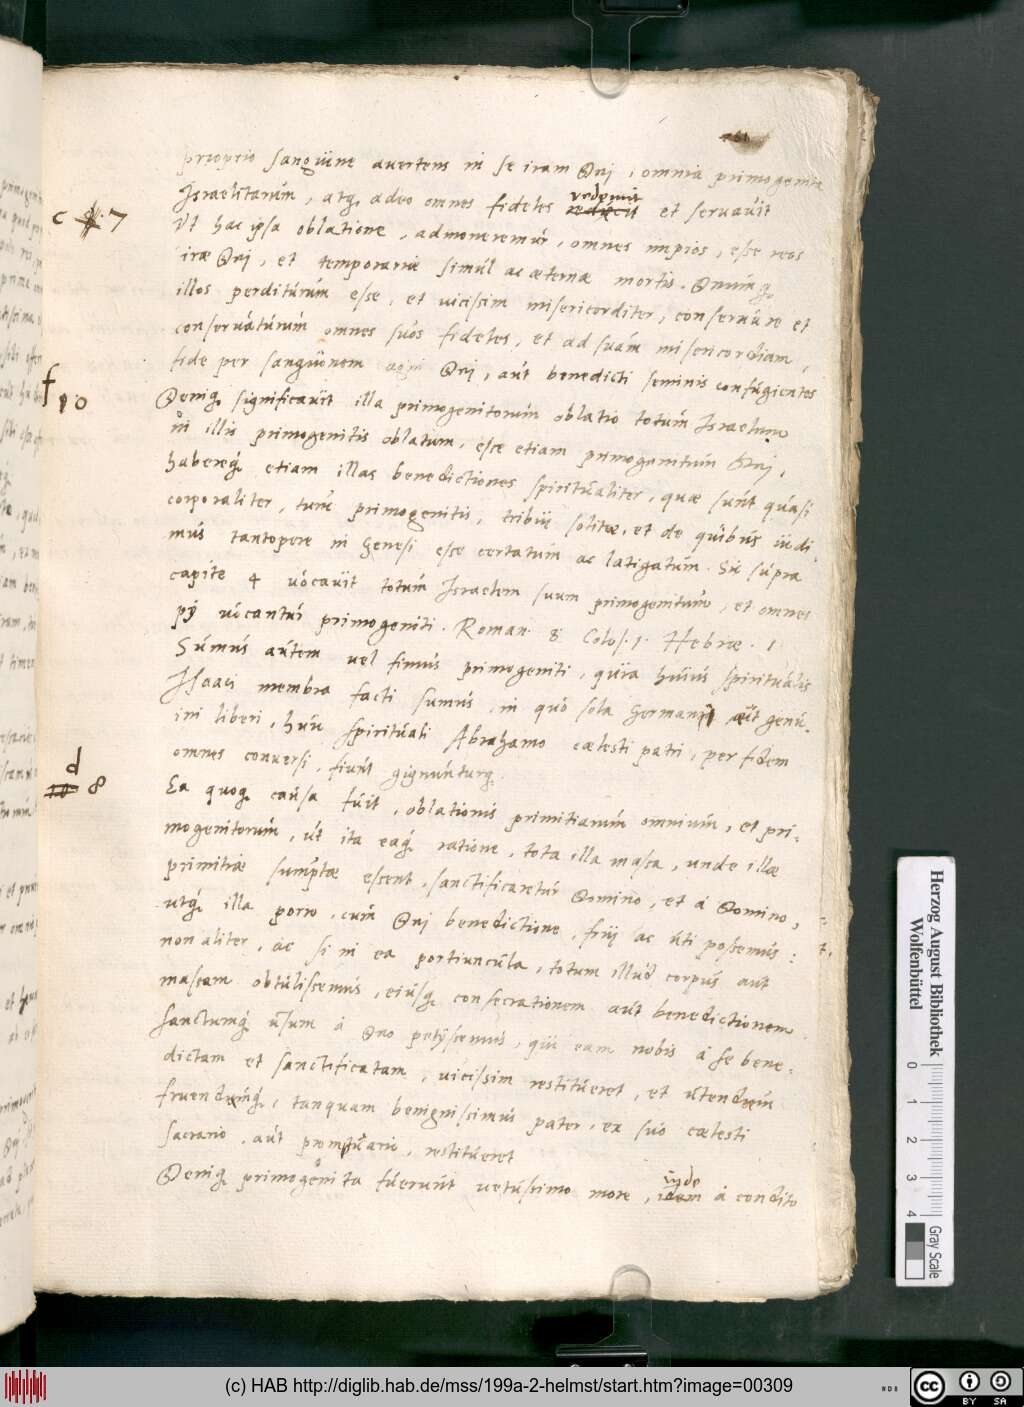 proprio sangüine avertens in se iram Dnj, omnia primogenita
Israelitarum, atq. adeo omnes fideles redemit et servavit
c 7
Vt hac ipsa oblatione, admoneremur, omnes impios, esse reos
iræ Dnj, et temporariæ simúl ac æternæ mortis. Dnumq.
illos perditúrúm esse, et vicissim misericorditer, conservare et
conservatúrúm omnes súos fideles, et ad súam misericordiam,
fide per sangúinem agni Dnj, aút benedicti seminis confúgientes
f 10
Deniq. significavit illa primogenitorum oblatio totum Israelem
in illis primogenitis oblatum, esse etiam primogenitum Dnj,
habereq. etiam illas benedictiones spiritúaliter, quæ súnt qúasi
corporaliter, túm primogenitis, tribúi solitæ, et de qúibús údi
mús tantopere in Genesi esse certatum ac latigatúm. Sic súpra
capite 4 vócavit totúm Israelem suum primogenitum, et omnes
pij vocantúr primogeniti. Roman. 8. Colos. 1. Hebræ. 1
Súmús aútem vel simús primogeniti, qúia húiús spiritúalis
Isaaci membra facti sumús, in qúo sola germani aút genú-
ini liberi, húic spiritúali Abrahamo cælesti patri, per fidem
omnes conversi, fiúnt gignúnturq.
d 8
Ea quoq. caúsa fúit, oblationis primitiarúm omniúm, et pri-
mogenitorúm, út ita eaq. ratione, tota illa massa, unde illæ
primitiæ sumptæ essent, sanctificaretúr Domino, et á Domino,
utq. illa porro, cúm Dnj benedictione, frúj ac úti possemús:
non aliter, ac si in ea portiuncúla, totum illúd corpús aut
massam obtúlissemús, eiúsq. consecrationem aút benedictionem
sanctumq. úsum á Dno petijssemús, qúi eam nobis á se bene-
dictam et sanctificatam, vicissim restitúeret, et útendúm
fruendúmq., tanquam benignissimús pater, ex súo cælesti
sacrario, aút promptúario, restitúeret
Deniq. primogenita fúerúnt vetústissimo more, inde á condito
Herzog August Bibliothek
Wolfenbüttel
0 1 2 3 4
Gray Scale
(c) HAB http://diglib.hab.de/mss/199a-2-helmst/start.htm?image=00309
cc BY SA